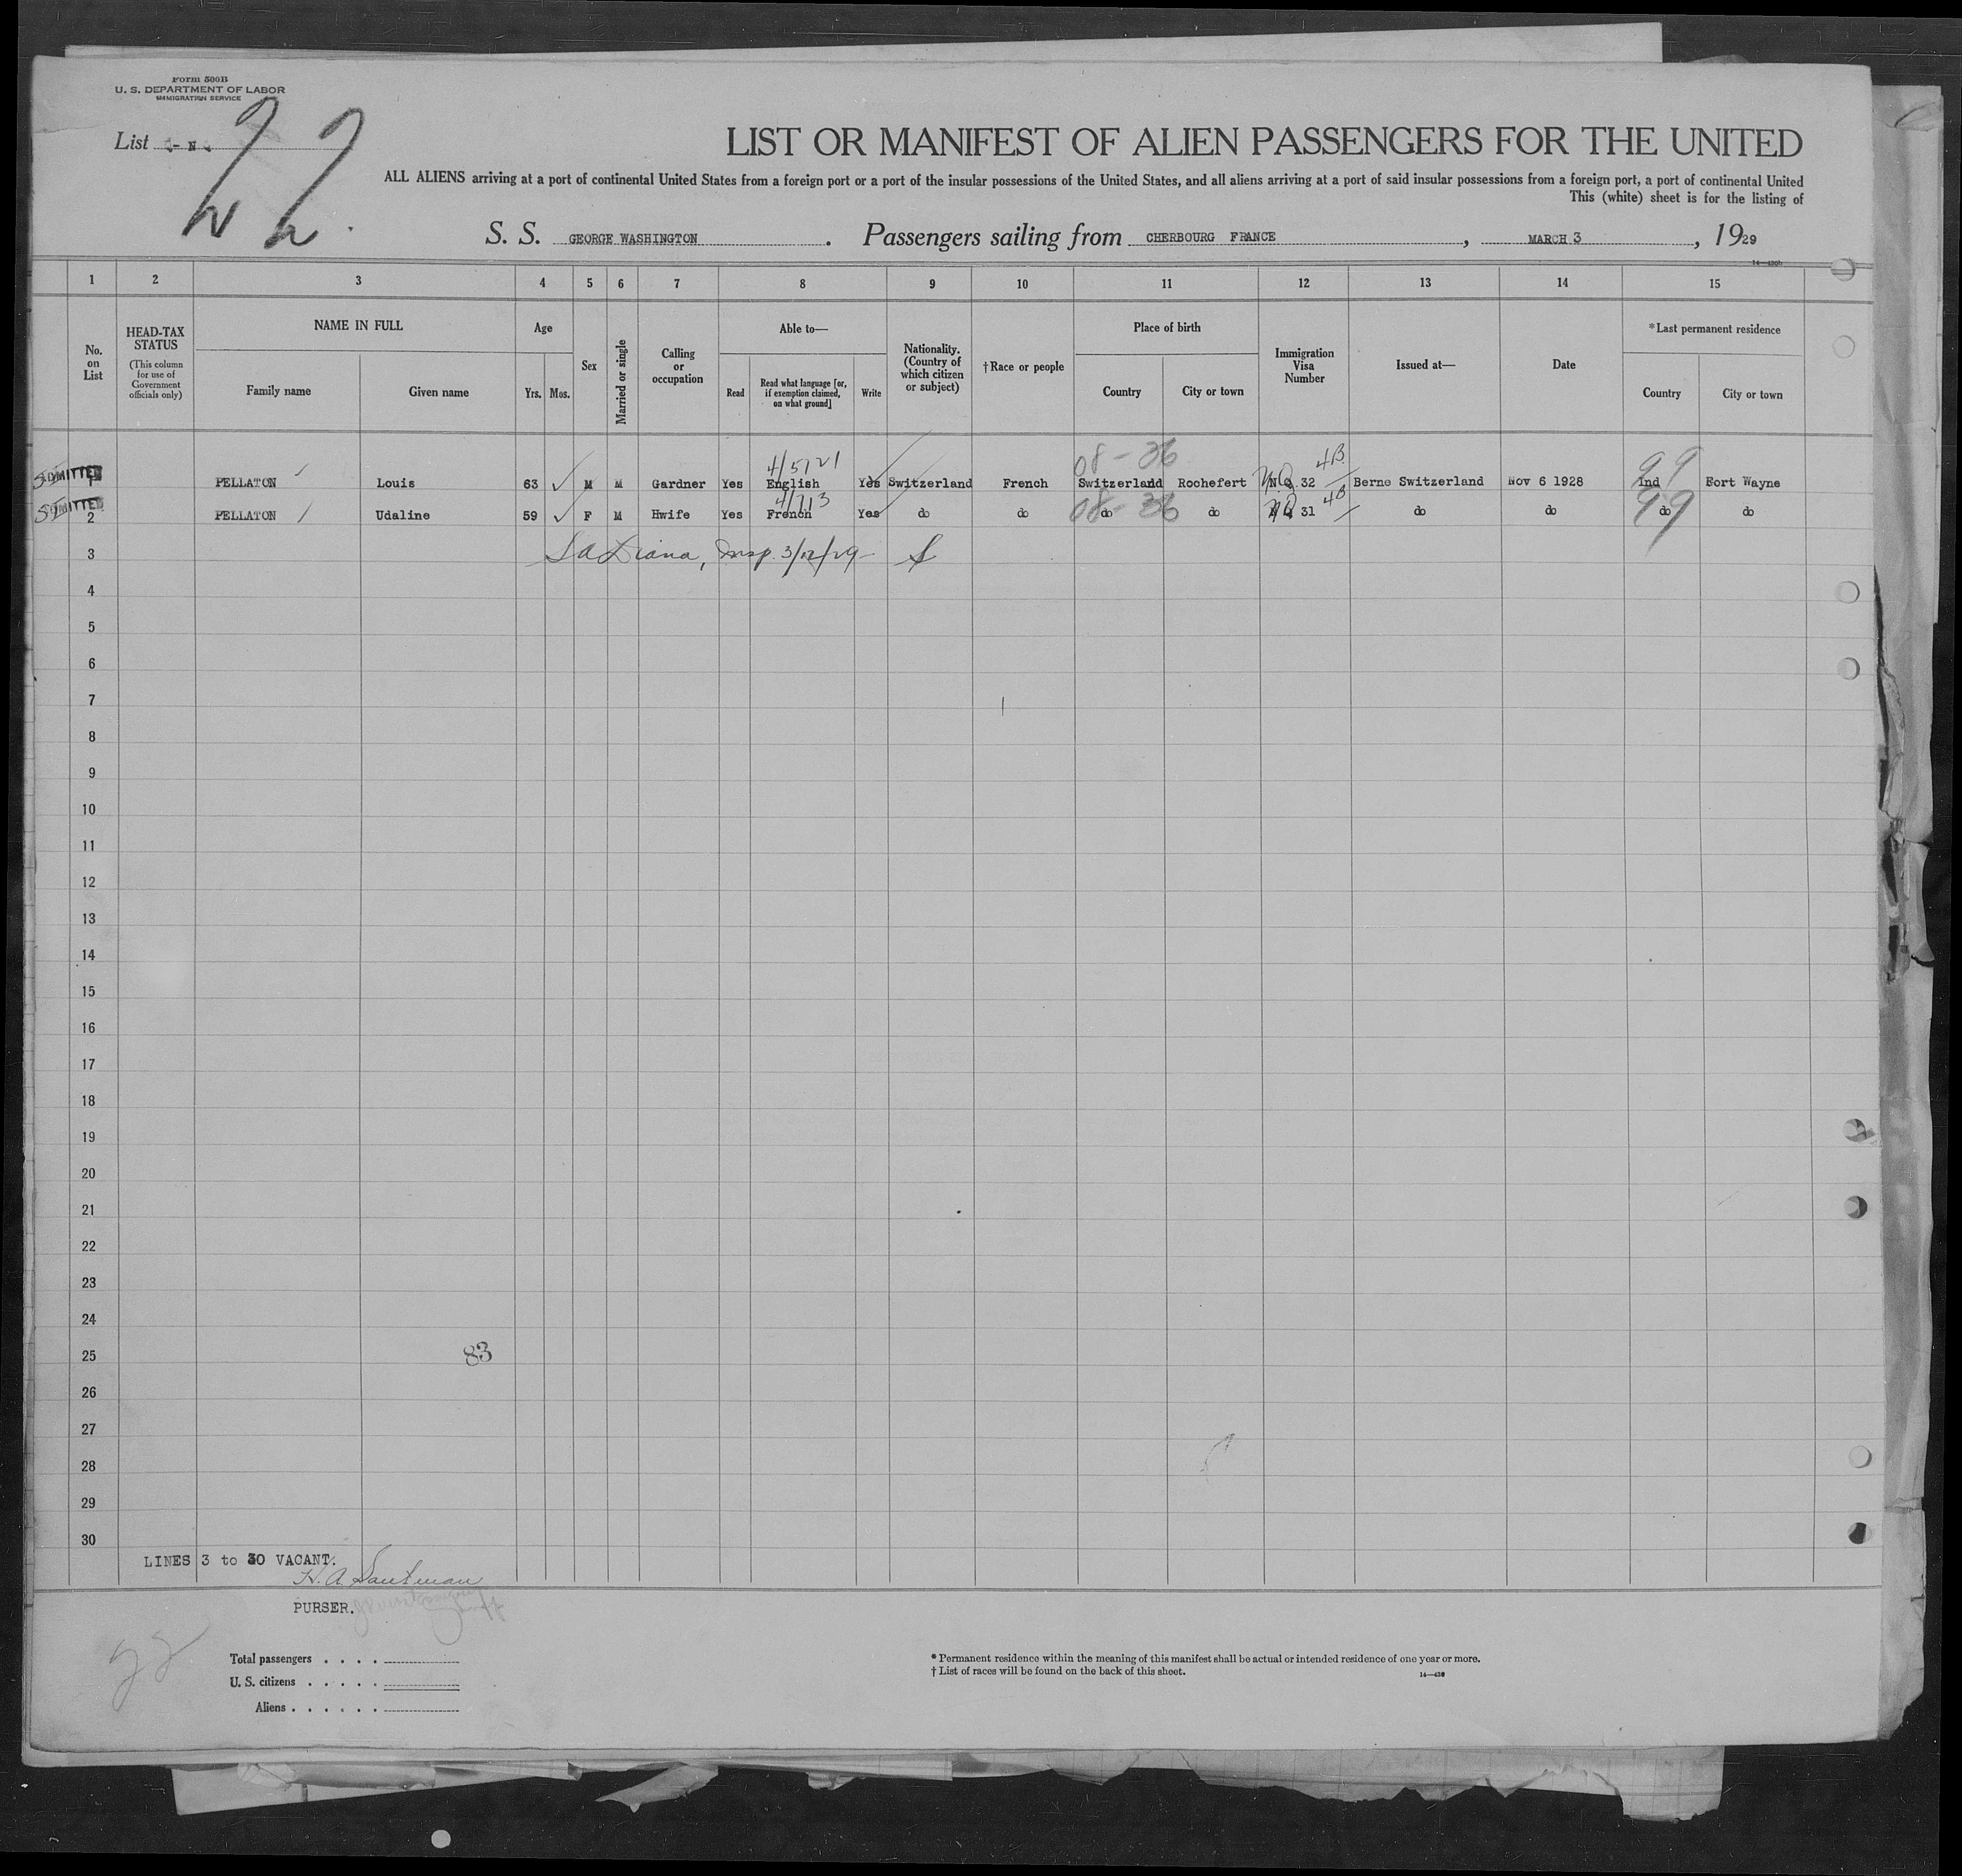 Form 500B
U. S. DEPARTMENT OF LABOR
IMMIGRATION SERVICE
List - N -
LIST OR MANIFEST OF ALIEN PASSENGERS FOR THE UNITED
ALL ALIENS arriving at a port of continental United States from a foreign port or a port of the insular possessions of the United States, and all aliens arriving at a port of said insular possessions from a foreign port, a port of continental United
This (white) sheet is for the listing of
S. S. GEORGE WASHINGTON . Passengers sailing from CHERBOURG FRANCE , MARCH 3 , 1929
1 2 3 4 5 6 7 8 9 10 11 12 13 14 15
No. on List
HEAD-TAX STATUS
(This column for use of Government officials only)
NAME IN FULL
Family name Given name
Age
Yrs. Mos.
Sex
Married or single
Calling or occupation
Able to—
Read
Read what language [or, if exemption claimed, on what ground]
Write
Nationality. (Country of which citizen or subject)
†Race or people
Place of birth
Country City or town
Immigration Visa Number
Issued at—
Date
*Last permanent residence
Country City or town
4/5721 08-36 4B. 99
ADMITTED 1 PELLATON Louis 63 M M Gardner Yes English Yes Switzerland French Switzerland Rochefert N.Q. 32 Berne Switzerland Nov 6 1928 Ind Fort Wayne
4/713 08-36 4B 99
ADMITTED 2 PELLATON Udaline 59 F M Hwife Yes French Yes do do do do 31 do do do do
3 Insp. 3/12/29
4
5
6
7
8
9
10
11
12
13
14
15
16
17
18
19
20
21
22
23
24
83
25
26
27
28
29
30
LINES 3 to 30 VACANT.
PURSER.
Total passengers . . . .
U. S. citizens . . . . .
Aliens . . . . . .
* Permanent residence within the meaning of this manifest shall be actual or intended residence of one year or more.
† List of races will be found on the back of this sheet.